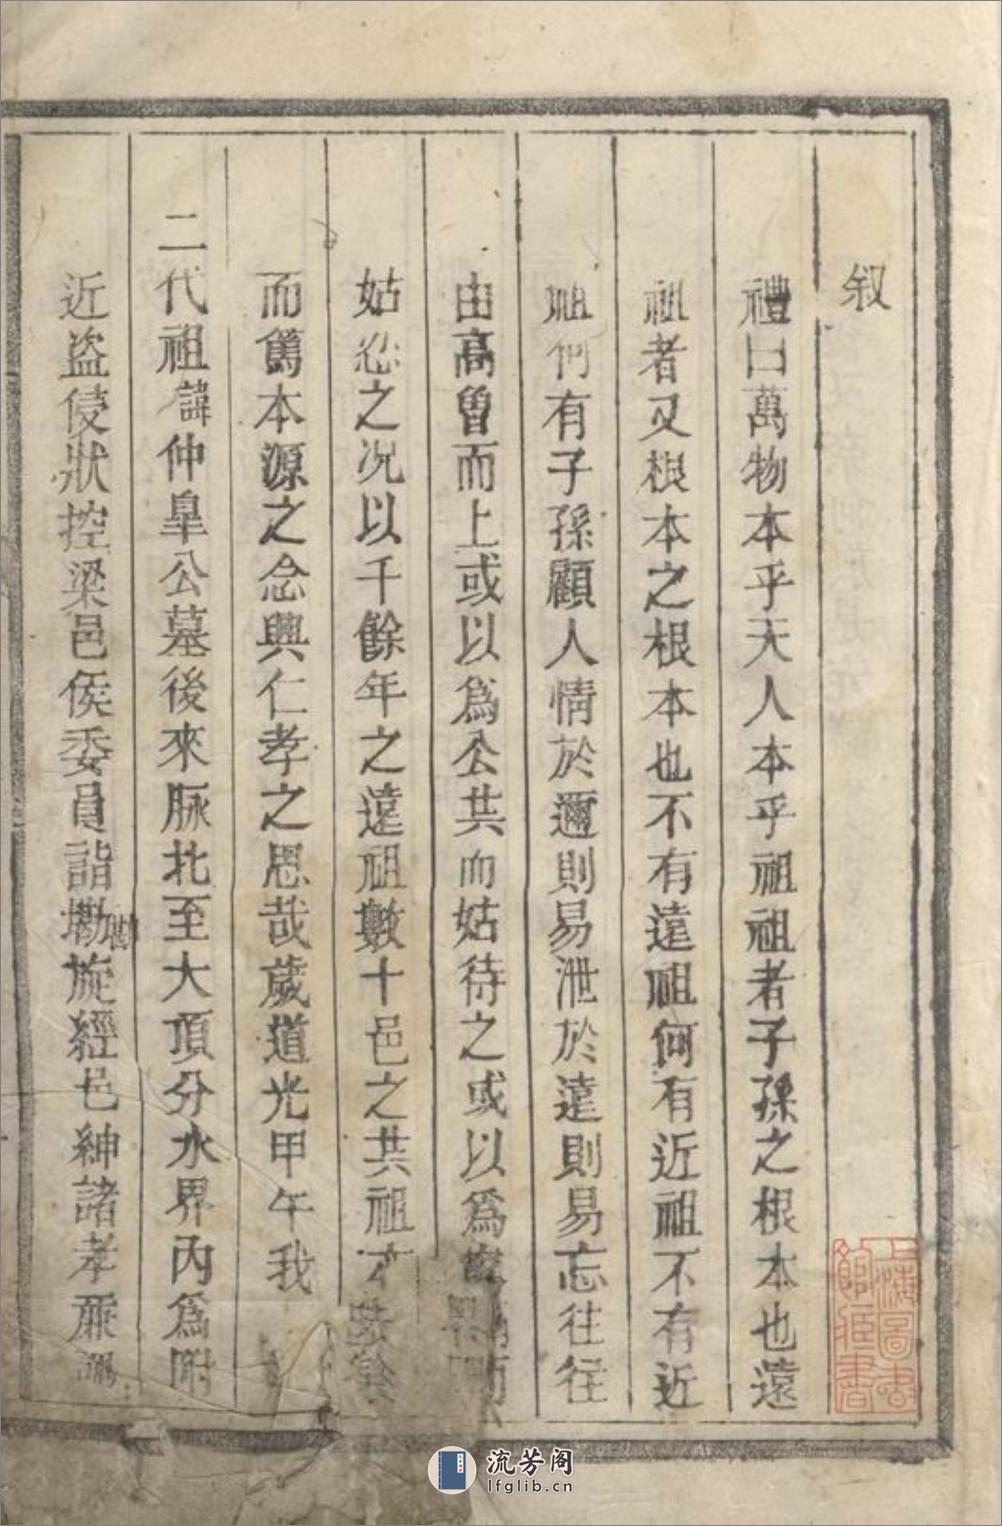 叙
禮曰萬物本乎天人本乎祖祖者子孫之根本也遠
祖者又根本之根本也不有遠祖何有近祖不有近
祖何有子孫顧人情於邇則易泄於遠則易忘往往
由高曾而上或以爲公共而姑待之或以爲
姑忽之况以千餘年之遠祖數十邑之共祖
而篤本源之念興仁孝之思哉歲道光甲午我
二代祖諱仲臯公墓後來脉北至大頂分水界內爲附
近盜侵狀控梁邑侯委員詣墈勘旋經邑紳諸孝廉
上海圖書館藏書
流芳阁
lfglib.cn